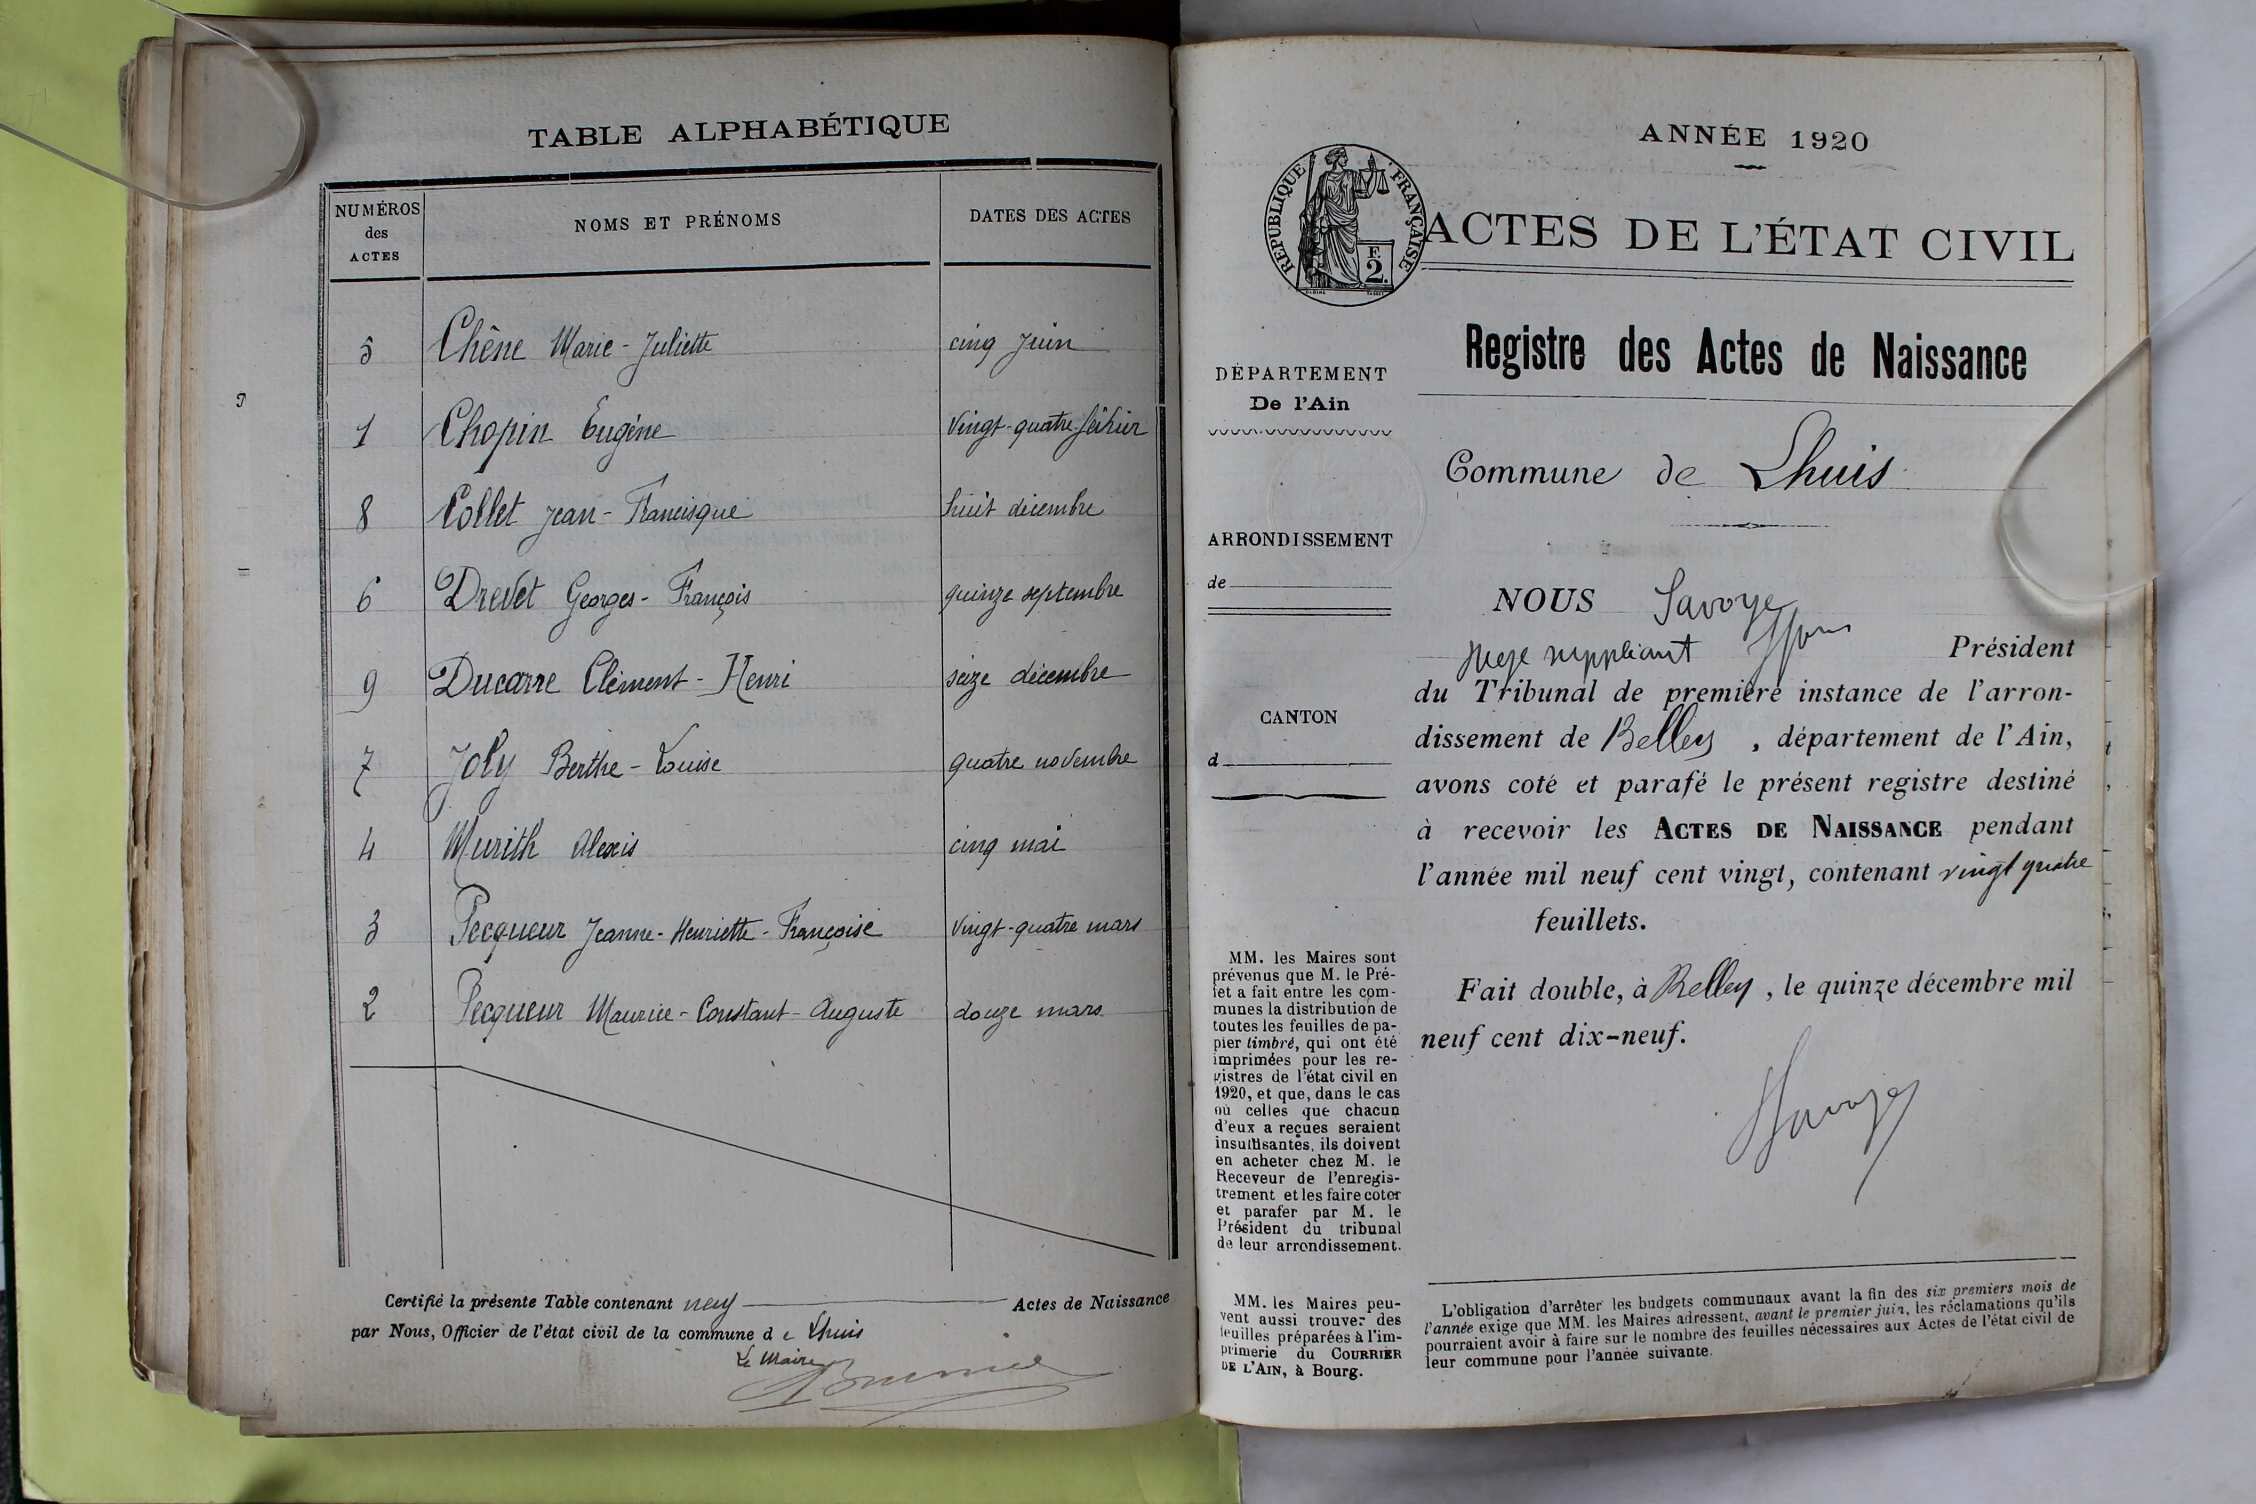 TABLE ALPHABÉTIQUE
NUMÉROS des ACTES NOMS ET PRÉNOMS DATES DES ACTES
5 Chêne Marie-Juliette cinq Juin
1 Chopin Eugène Vingt-quatre février
8 Collet Jean-Francisque huit décembre
6 Drevet Georges-François quinze septembre
9 Ducarre Clément-Henri seize décembre
7 Joly Berthe-Louise quatre novembre
4 Murith Alexis cinq mai
3 Pecqueur Jeanne-Henriette-Françoise Vingt-quatre mars
2 Pecqueur Maurice-Constant-Auguste douze mars
Certifié la présente Table contenant neuf Actes de Naissance
par Nous, Officier de l'état civil de la commune de Lhuis
Le Maire
ANNÉE 1920
RÉPUBLIQUE FRANÇAISE
F. 2.
ACTES DE L'ÉTAT CIVIL
Registre des Actes de Naissance
DÉPARTEMENT
De l'Ain
Commune de Lhuis
ARRONDISSEMENT
de
CANTON
d
NOUS Savoye
juge suppléant Président
du Tribunal de première instance de l'arron-
dissement de Belley, département de l'Ain,
avons coté et parafé le présent registre destiné
à recevoir les ACTES DE NAISSANCE pendant
l'année mil neuf cent vingt, contenant vingt quatre
feuillets.
Fait double, à Belley, le quinze décembre mil
neuf cent dix-neuf.
Savoye
MM. les Maires sont
prévenus que M. le Pré-
fet a fait entre les com-
munes la distribution de
toutes les feuilles de pa-
pier timbré, qui ont été
imprimées pour les re-
gistres de l'état civil en
1920, et que, dans le cas
où celles que chacun
d'eux a reçues seraient
insuffisantes, ils doivent
en acheter chez M. le
Receveur de l'enregis-
trement et les faire coter
et parafer par M. le
Président du tribunal
de leur arrondissement.
MM. les Maires peu-
vent aussi trouver des
feuilles préparées à l'im-
primerie du COURRIER
DE L'AIN, à Bourg.
L'obligation d'arrêter les budgets communaux avant la fin des six premiers mois de
l'année exige que MM. les Maires adressent, avant le premier juin, les réclamations qu'ils
pourraient avoir à faire sur le nombre des feuilles nécessaires aux Actes de l'état civil de
leur commune pour l'année suivante.